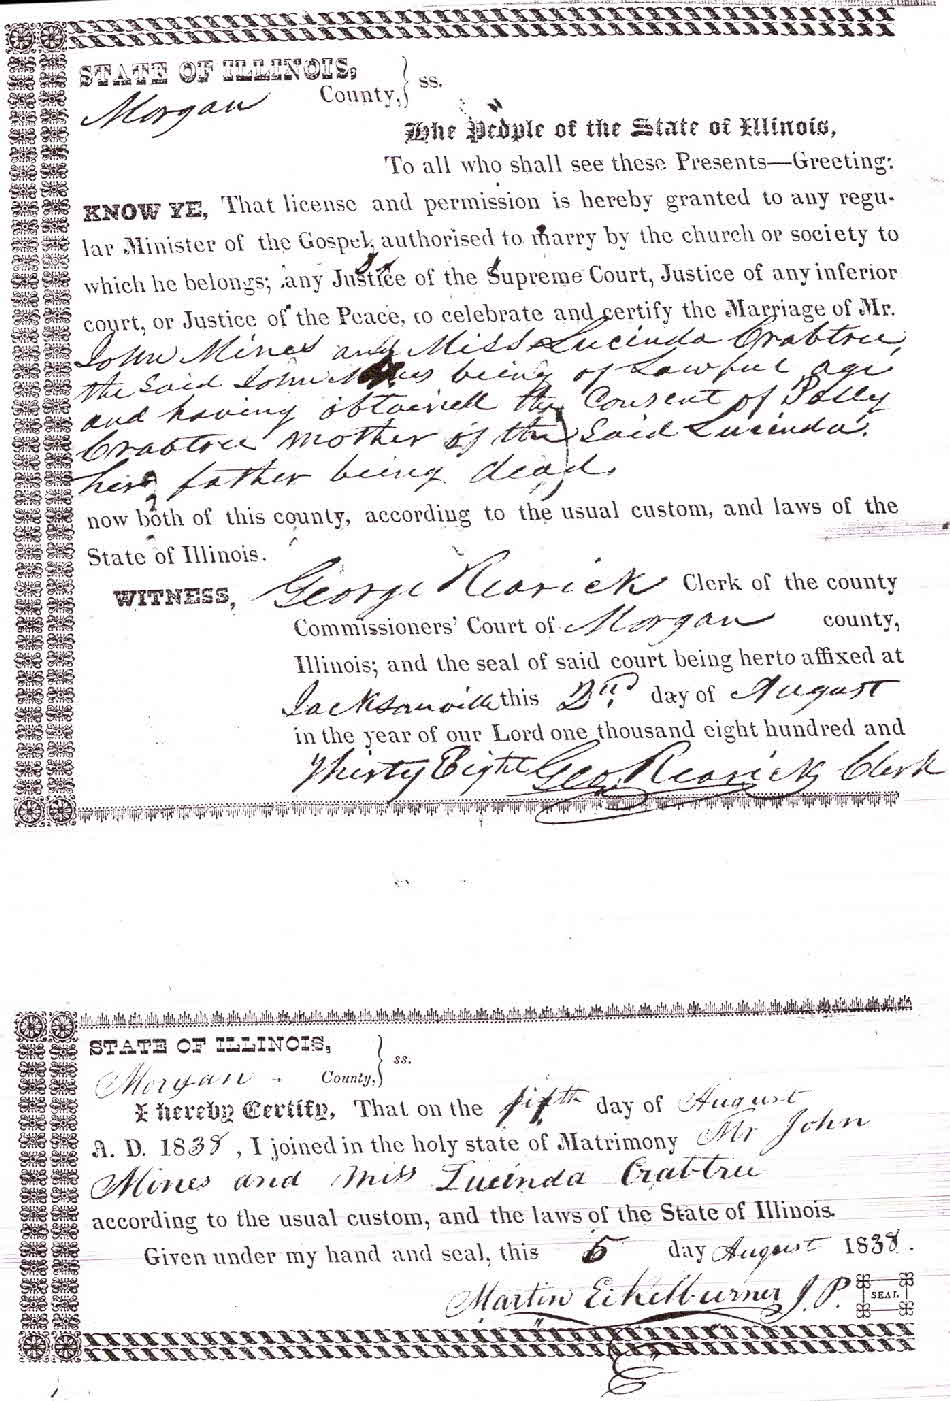 STATE OF ILLINOIS,
Morgan County, } ss.
The People of the State of Illinois,
To all who shall see these Presents—Greeting:
KNOW YE, That license and permission is hereby granted to any regu-
lar Minister of the Gospel, authorised to marry by the church or society to
which he belongs; any Justice of the Supreme Court, Justice of any inferior
court, or Justice of the Peace, to celebrate and certify the Marriage of Mr.
John Mines and Miss Lucinda Crabtree,
the Said John Mines being of Lawful age
and having obtained the Consent of Polly
Crabtree mother of the Said Lucinda.
her father being dead.
now both of this county, according to the usual custom, and laws of the
State of Illinois.
WITNESS, George Rearick Clerk of the county
Commissioners' Court of Morgan county,
Illinois; and the seal of said court being herto affixed at
Jacksonville this day of August
in the year of our Lord one thousand eight hundred and
Thirty Eight Geo. Rearick Clerk
STATE OF ILLINOIS,
Morgan County, } ss.
I hereby Certify, That on the fifth day of August
A. D. 1838, I joined in the holy state of Matrimony Mr John
Mines and Miss Lucinda Crabtree
according to the usual custom, and the laws of the State of Illinois.
Given under my hand and seal, this 5 day August 1838.
Martin Eikelburner J. P. SEAL